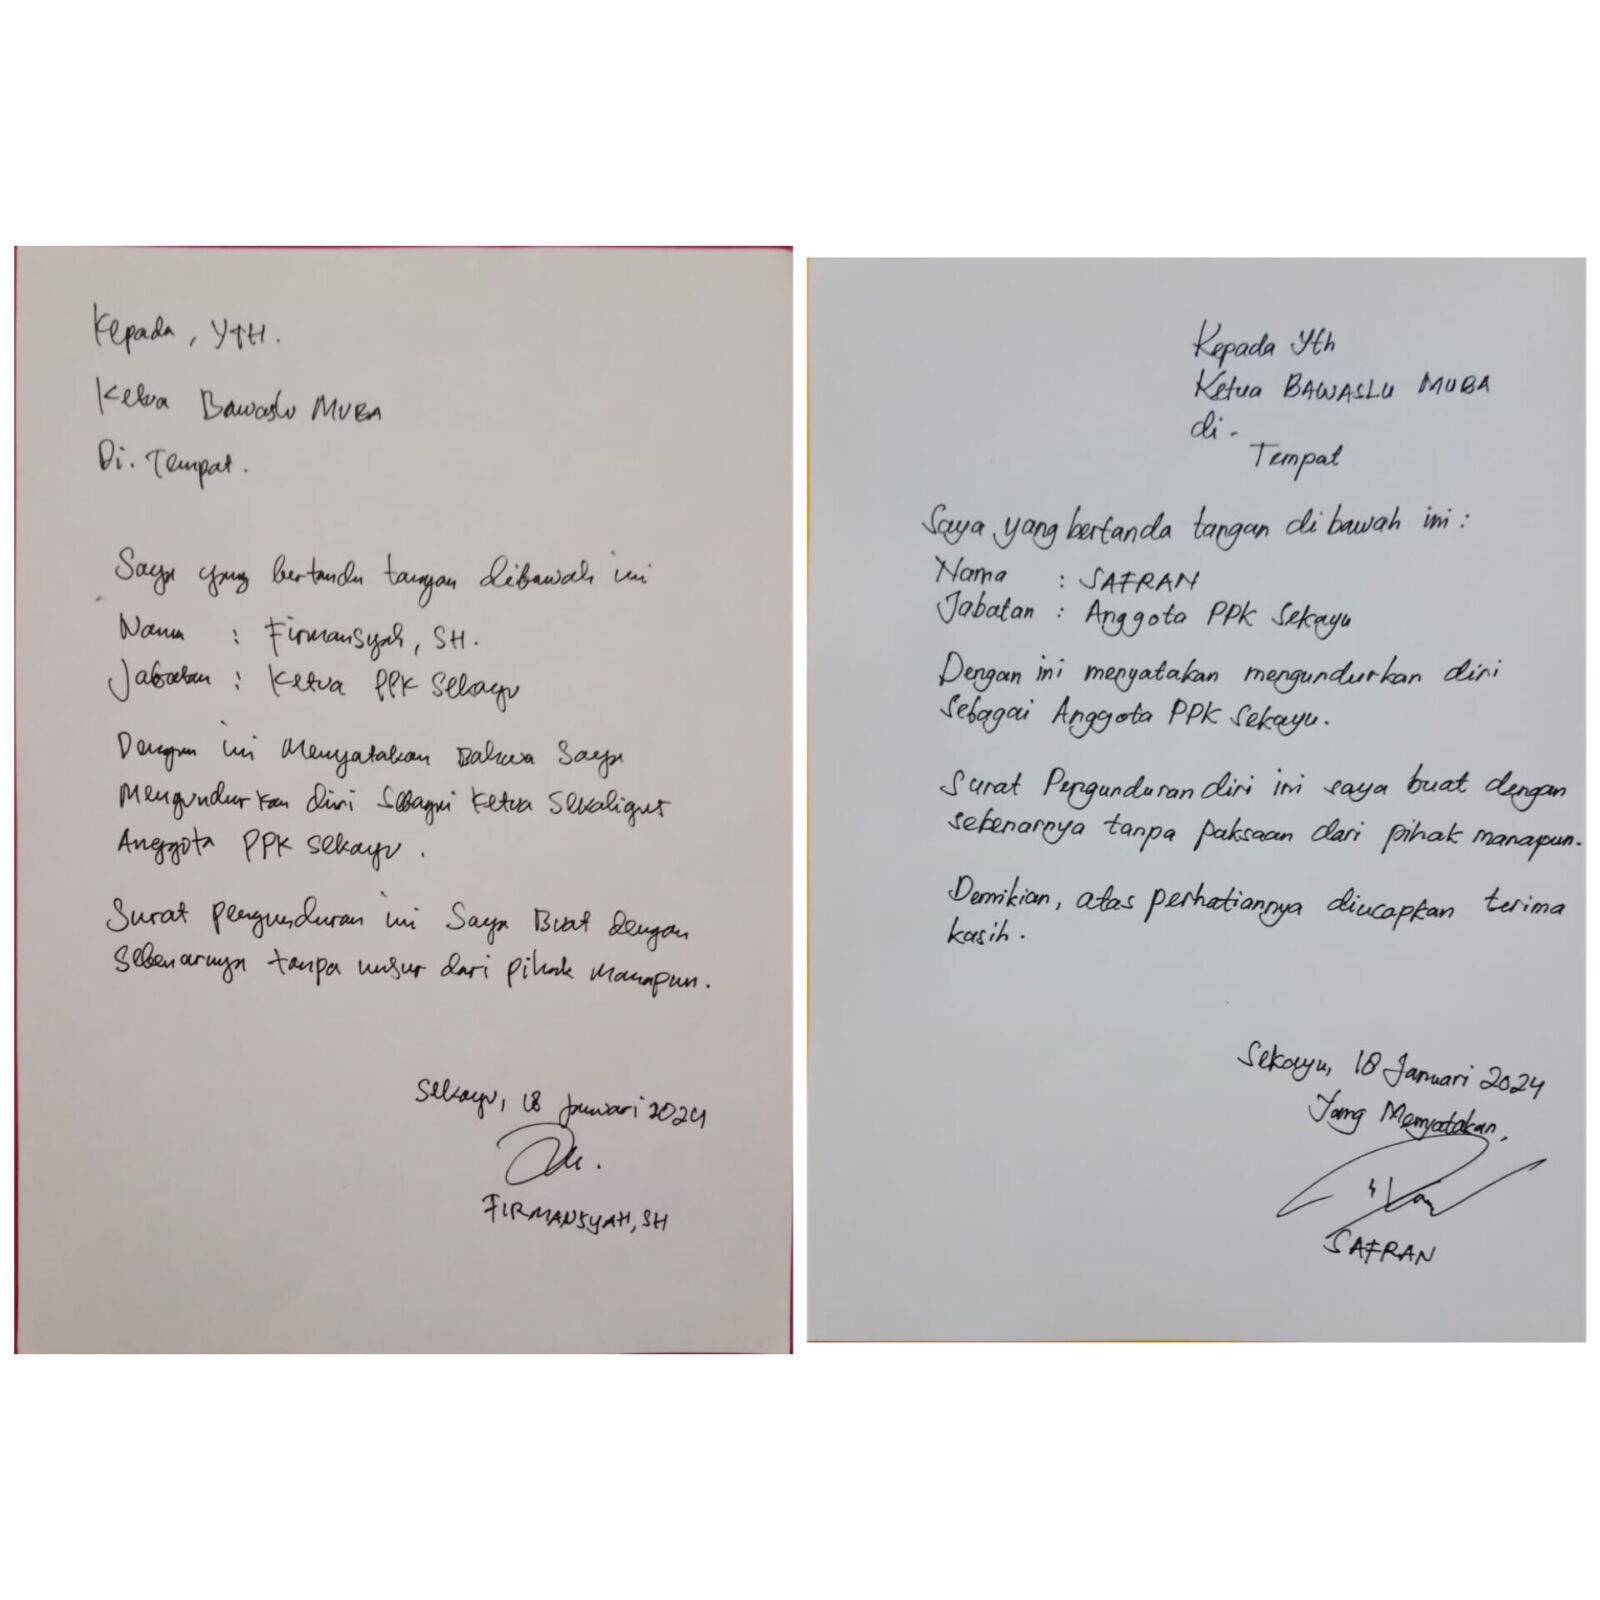 Kepada, YTH.
Ketua Bawaslu MUBA
Di. Tempat.
Saya yang bertanda tangan dibawah ini
Nama : Firmansyah, SH.
Jabatan : Ketua PPK Sekayu
Dengan ini Menyatakan Bahwa Saya
Mengundurkan diri Sebagai Ketua Sekaligus
Anggota PPK Sekayu.
Surat pengunduran ini Saya Buat dengan
Sebenarnya tanpa unsur dari pihak manapun.
Sekayu, 18 Januari 2024
FIRMANSYAH, SH
Kepada Yth
Ketua BAWASLU MUBA
di -
Tempat
Saya yang bertanda tangan di bawah ini :
Nama : SAFRAN
Jabatan : Anggota PPK Sekayu
Dengan ini menyatakan mengundurkan diri
sebagai Anggota PPK Sekayu.
Surat Pengunduran diri ini saya buat dengan
sebenarnya tanpa paksaan dari pihak manapun.
Demikian, atas perhatiannya diucapkan terima
kasih.
Sekayu, 18 Januari 2024
Yang Menyatakan,
SAFRAN